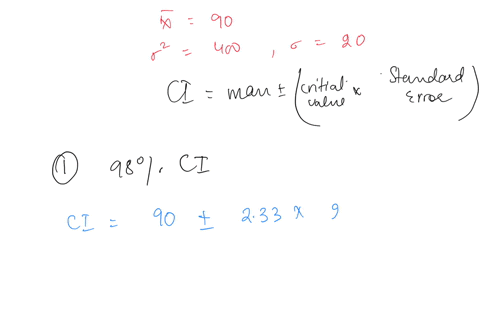 x̄ = 90
σ² = 400 , σ = 20
CI = mean ± (critical value × Standard Error)
① 98% CI
CI = 90 ± 2.33 ×